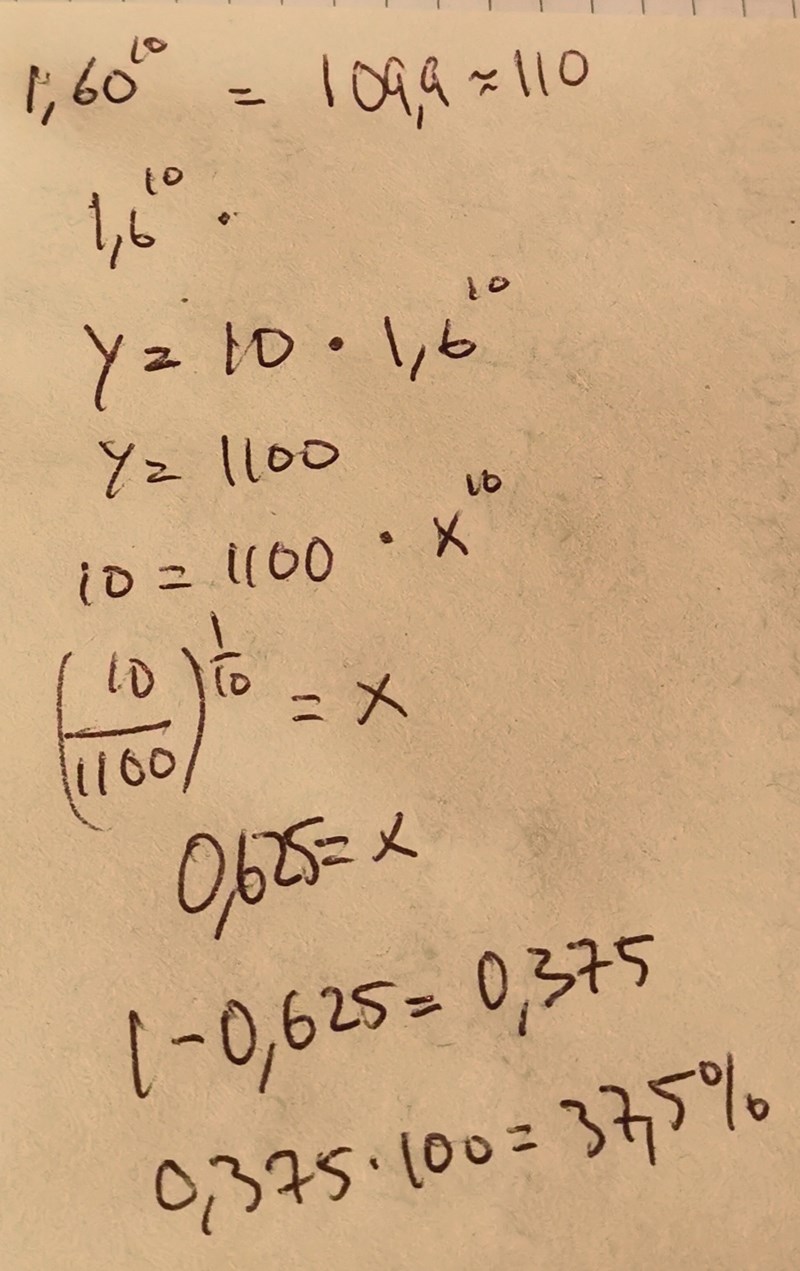 1,60¹⁰ = 109,9 ≈ 110
1,6¹⁰ ·
y = 10 · 1,6¹⁰
y = 1100
10 = 1100 · x¹⁰
(10/1100)^(1/10) = x
0,625 = x
1 - 0,625 = 0,375
0,375 · 100 = 37,5%